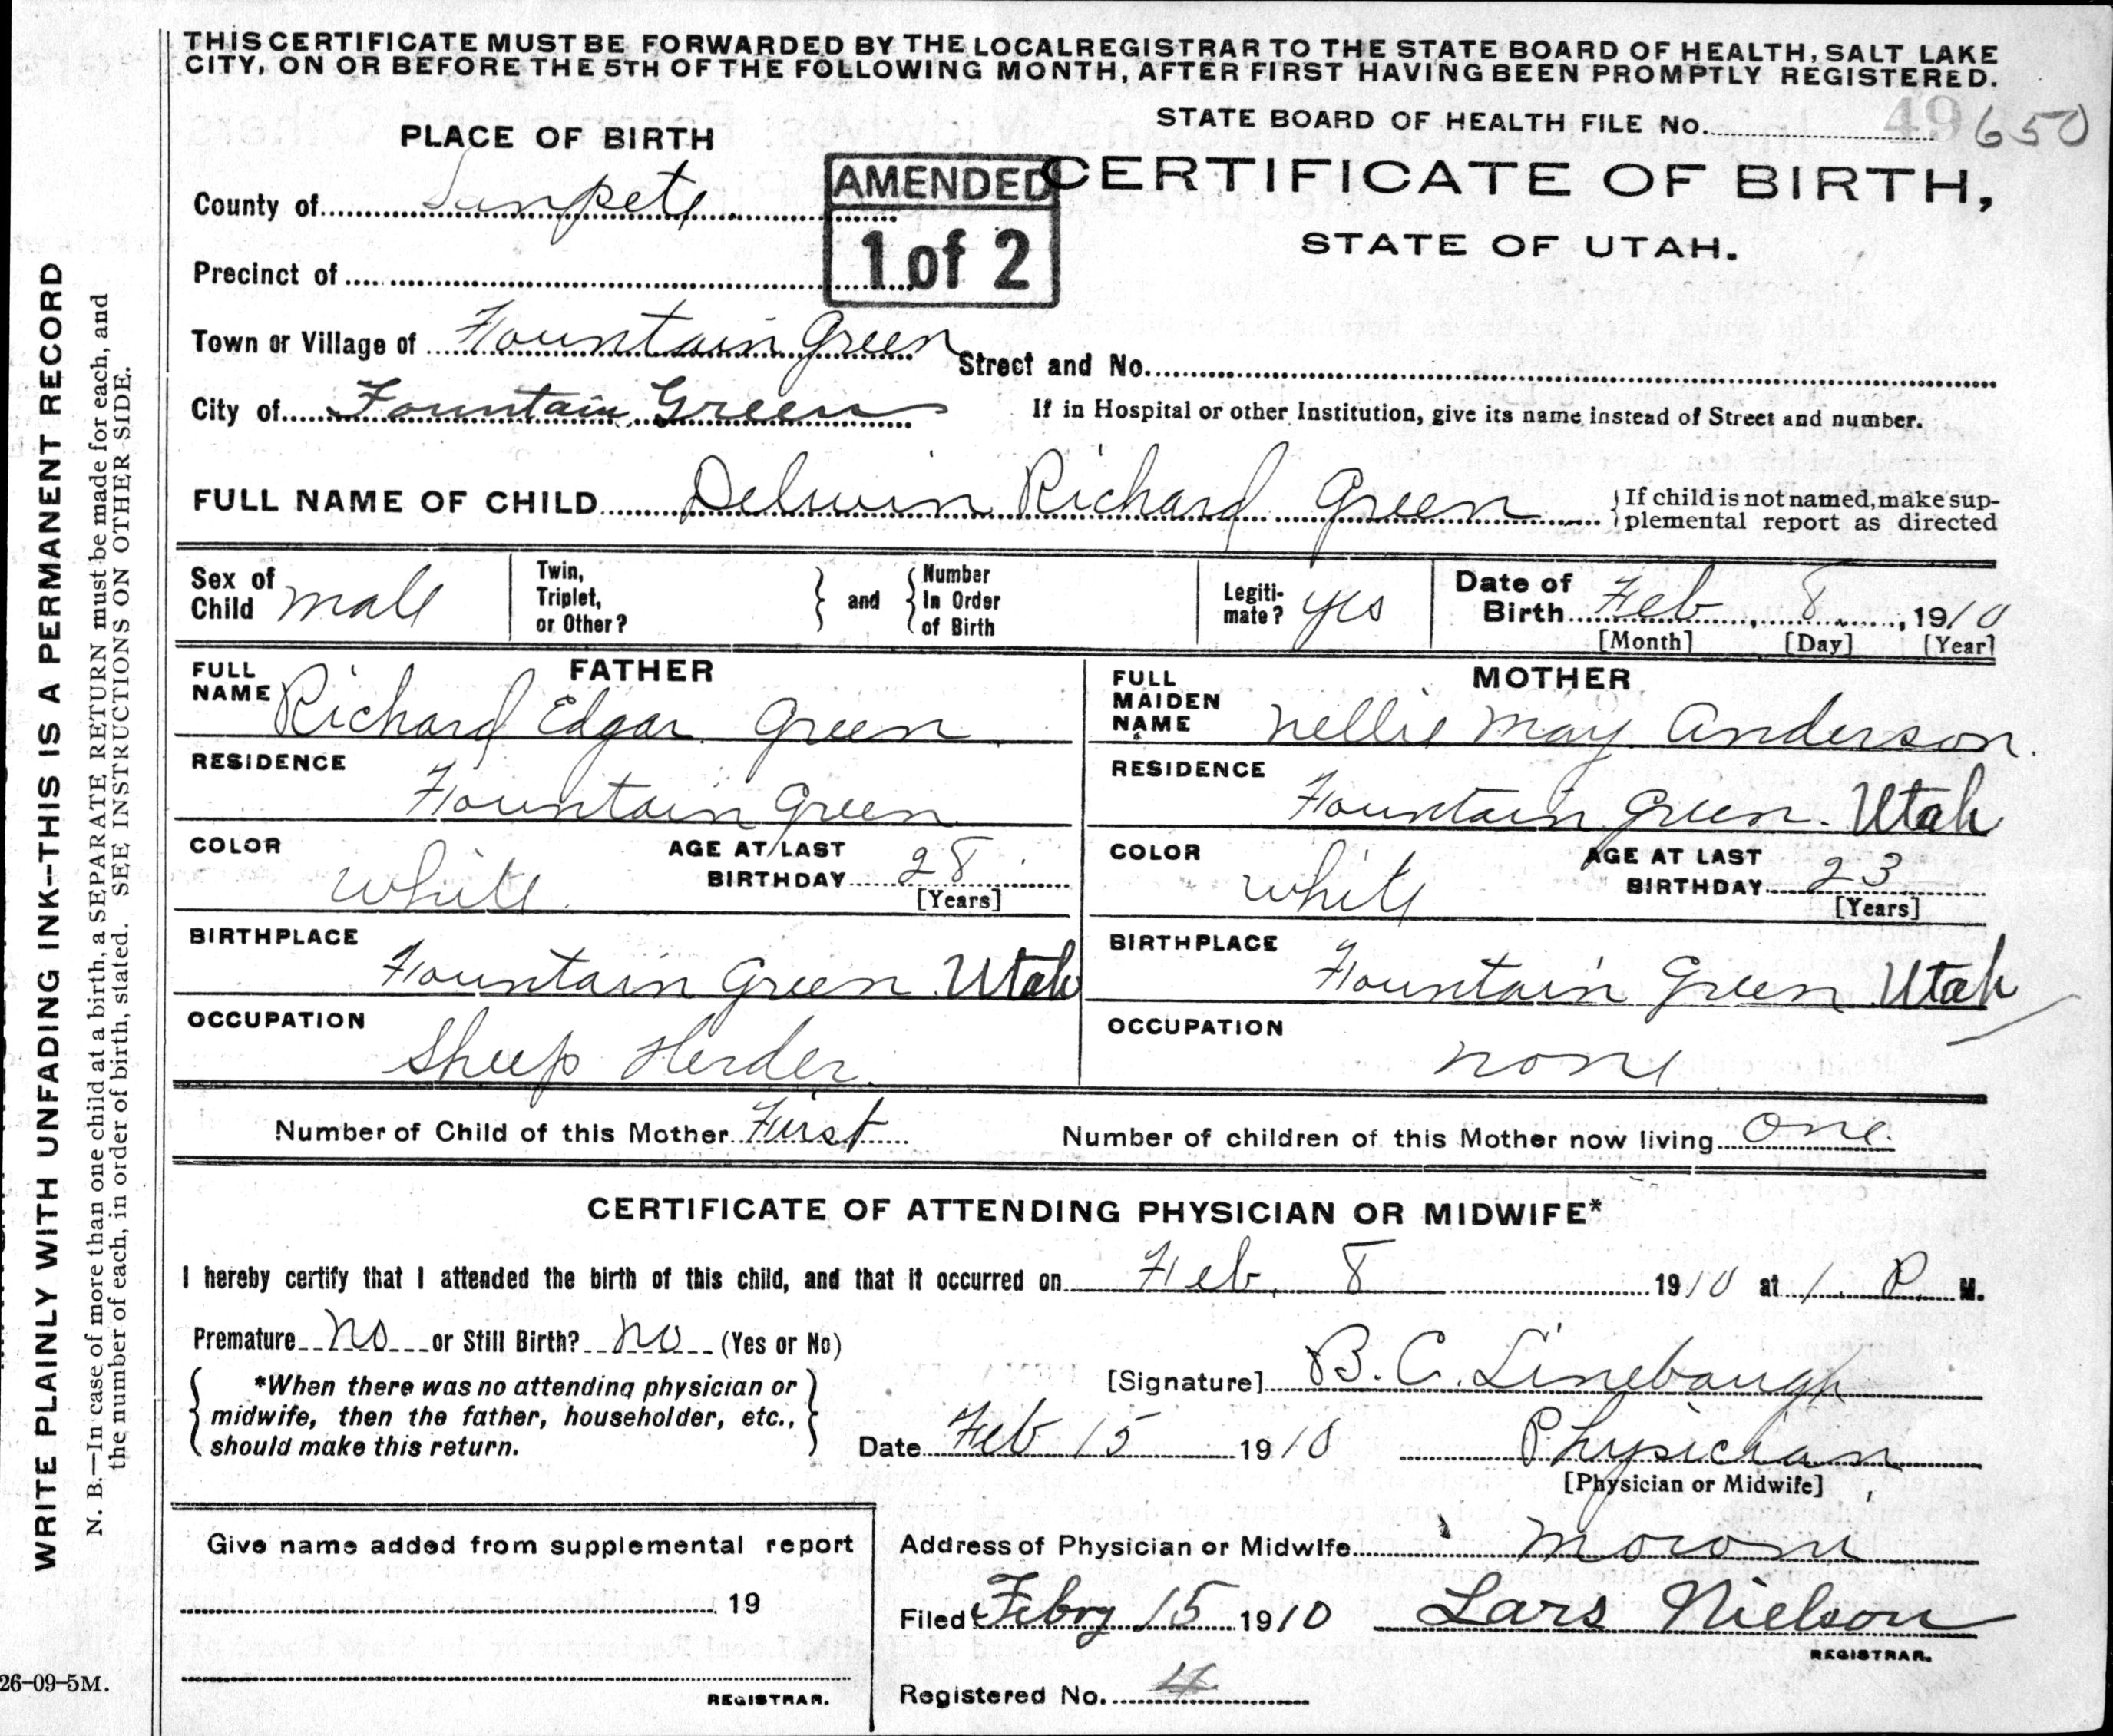 THIS CERTIFICATE MUST BE FORWARDED BY THE LOCAL REGISTRAR TO THE STATE BOARD OF HEALTH, SALT LAKE
CITY, ON OR BEFORE THE 5TH OF THE FOLLOWING MONTH, AFTER FIRST HAVING BEEN PROMPTLY REGISTERED.
STATE BOARD OF HEALTH FILE No. 49 650
PLACE OF BIRTH
AMENDED
1 of 2
CERTIFICATE OF BIRTH,
STATE OF UTAH.
County of Sanpete
Precinct of
Town or Village of Fountain Green
Street and No.
City of Fountain Green
If in Hospital or other Institution, give its name instead of Street and number.
FULL NAME OF CHILD Delwin Richard Green
If child is not named, make sup-
plemental report as directed
Sex of
Child male
Twin,
Triplet,
or Other?
and
Number
In Order
of Birth
Legiti-
mate? yes
Date of
Birth Feb, 8, 1910
[Month] [Day] [Year]
FATHER
FULL
NAME Richard Edgar Green
RESIDENCE
Fountain Green
COLOR
white
AGE AT LAST
BIRTHDAY 28
[Years]
BIRTHPLACE
Fountain Green Utah
OCCUPATION
Sheep Herder
MOTHER
FULL
MAIDEN
NAME Nellie May Anderson.
RESIDENCE
Fountain Green. Utah
COLOR
white
AGE AT LAST
BIRTHDAY 23
[Years]
BIRTHPLACE
Fountain Green Utah
OCCUPATION
none
Number of Child of this Mother First
Number of children of this Mother now living One.
CERTIFICATE OF ATTENDING PHYSICIAN OR MIDWIFE*
I hereby certify that I attended the birth of this child, and that it occurred on Feb, 8 1910 at 1 P. M.
Premature no or Still Birth? no (Yes or No)
*When there was no attending physician or
midwife, then the father, householder, etc.,
should make this return.
[Signature] B. C. Linebaugh
Date Feb 15 1910 Physician
[Physician or Midwife]
Give name added from supplemental report
19
REGISTRAR.
Address of Physician or Midwife Moroni
Filed Febry 15 1910 Lars Nielson
REGISTRAR.
Registered No. 4
WRITE PLAINLY WITH UNFADING INK--THIS IS A PERMANENT RECORD
N. B.—In case of more than one child at a birth, a SEPARATE RETURN must be made for each, and
the number of each, in order of birth, stated. SEE INSTRUCTIONS ON OTHER SIDE.
26-09-5M.